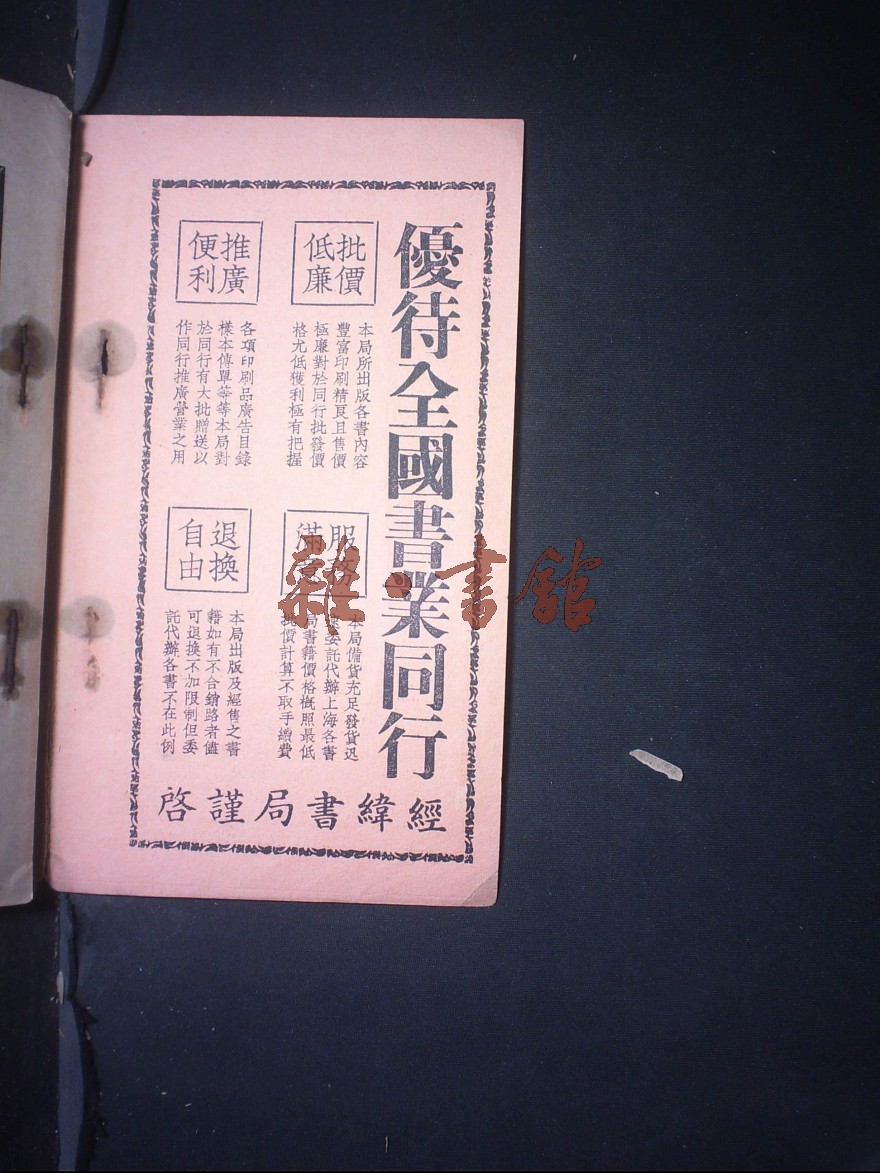 優待全國書業同行
批價
低廉
本局所出版各書內容
豐富印刷精良且售價
極廉對於同行批發價
格尤低獲利極有把握
推廣
便利
各項印刷品廣告目錄
樣本傳單等等本局對
於同行有大批贈送以
作同行推廣營業之用
服務
滿
本局備貨充足發貨迅
委託代辦上海各書
局書籍價格概照最低
批價計算不取手續費
退換
自由
本局出版及經售之書
籍如有不合銷路者儘
可退換不加限制但委
託代辦各書不在此例
經緯書局謹啓
雜·書館